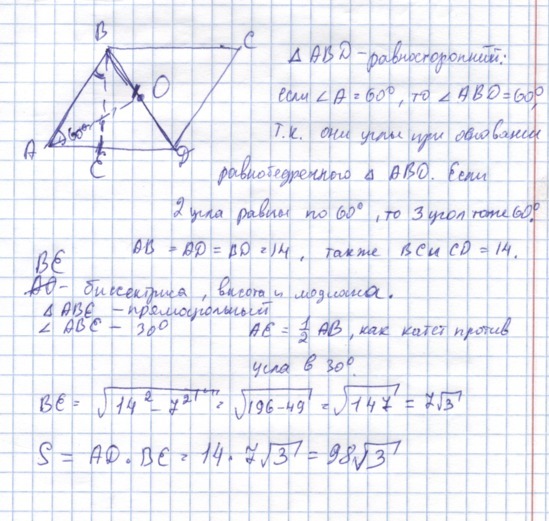 B
C
O
A
60°
E
D
Δ ABD - равносторонний:
если ∠A = 60°, то ∠ABD = 60°,
т.к. они углы при основании
равнобедренного Δ ABD. Если
2 угла равны по 60°, то 3 угол тоже 60°.
AB = AD = BD = 14, также BC и CD = 14.
BE
AO - биссектриса, высота и медиана.
Δ ABE - прямоугольный
∠ ABE - 30° AE = 1/2 AB, как катет против
угла в 30°.
BE = √14² - 7² = √196-49 = √147 = 7√3
S = AD · BE = 14 · 7√3 = 98√3